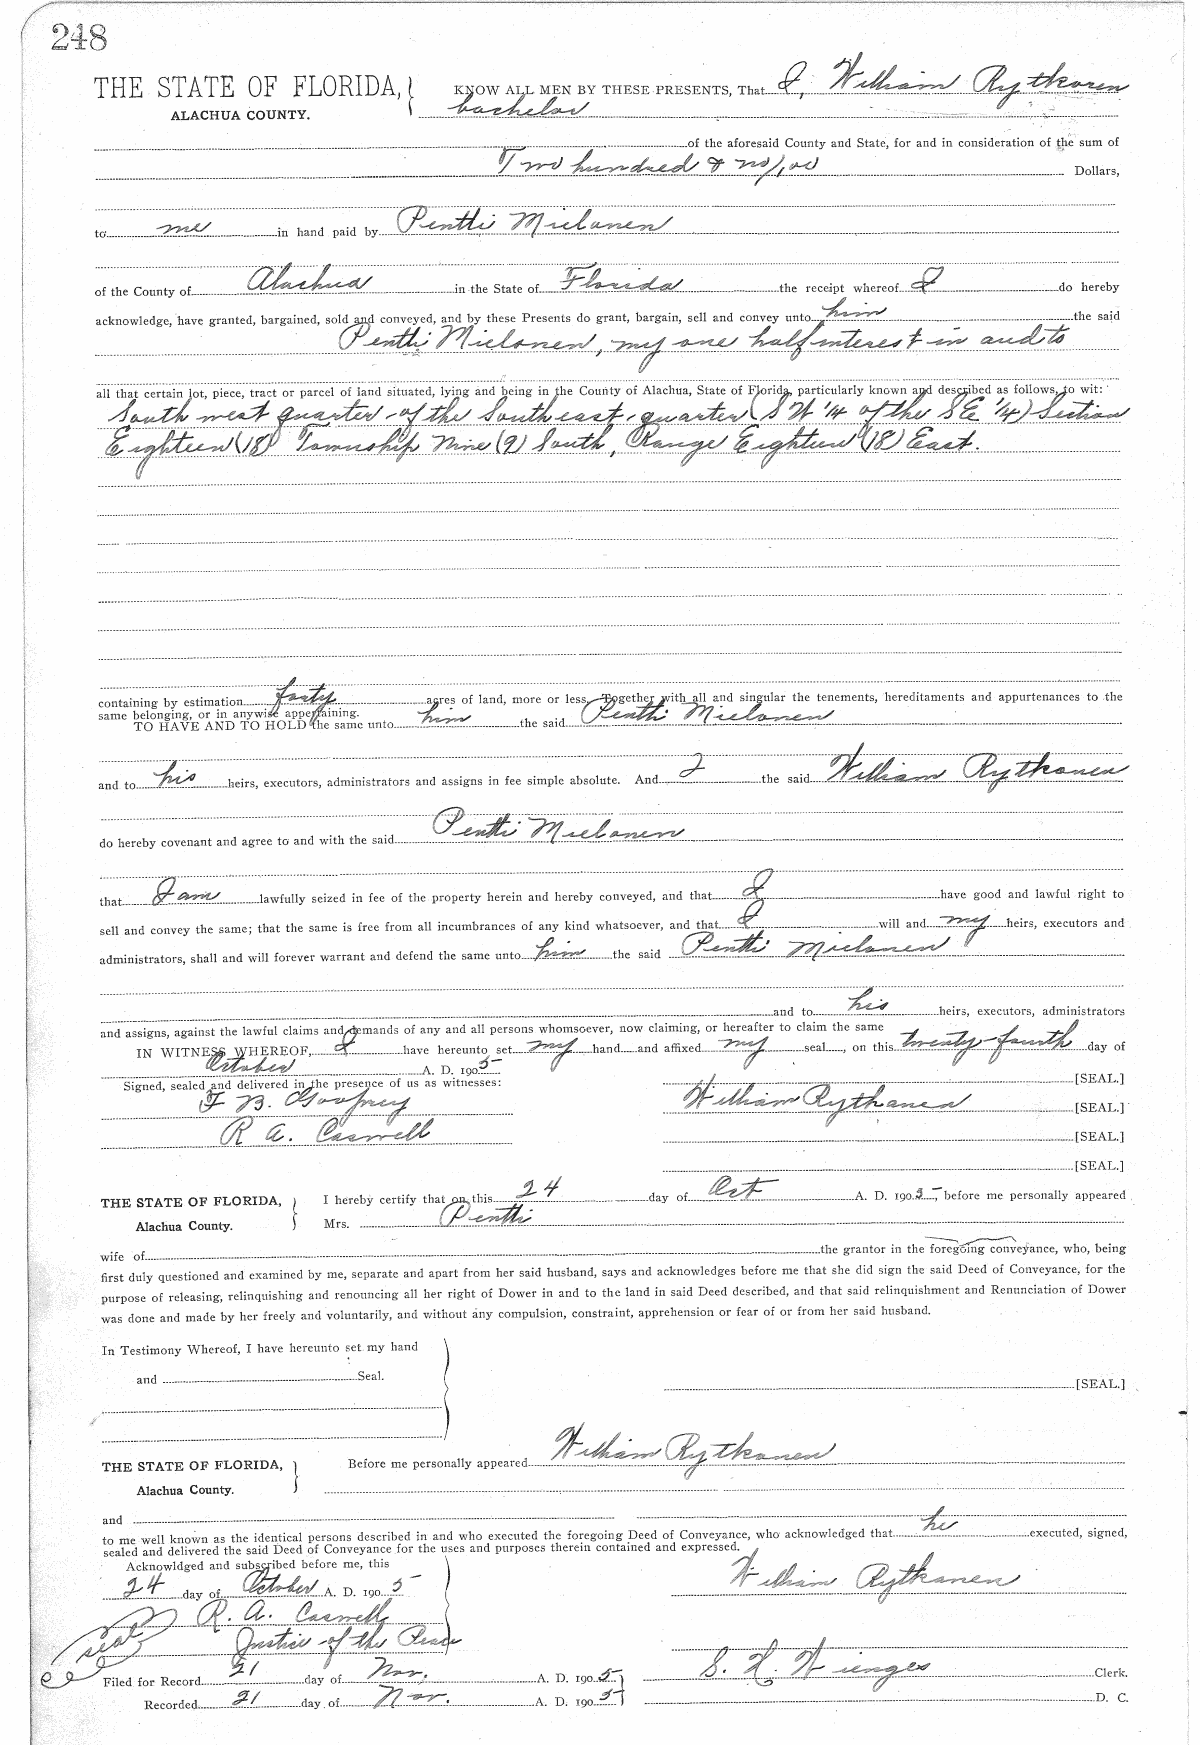 248
THE STATE OF FLORIDA, KNOW ALL MEN BY THESE PRESENTS, That I, William Rytkonen
ALACHUA COUNTY. bachelor
of the aforesaid County and State, for and in consideration of the sum of
Two hundred & no/100 Dollars,
to me in hand paid by Pentti Mielonen
of the County of Alachua in the State of Florida the receipt whereof I do hereby
acknowledge, have granted, bargained, sold and conveyed, and by these Presents do grant, bargain, sell and convey unto him the said
Pentti Mielonen, my one half interest in and to
all that certain lot, piece, tract or parcel of land situated, lying and being in the County of Alachua, State of Florida, particularly known and described as follows, to wit:
South west quarter of the South east quarter (S W 1/4 of the S E 1/4) Section
Eighteen (18) Township Nine (9) South, Range Eighteen (18) East.
containing by estimation forty acres of land, more or less. Together with all and singular the tenements, hereditaments and appurtenances to the
same belonging, or in anywise appertaining.
TO HAVE AND TO HOLD the same unto him the said Pentti Mielonen
and to his heirs, executors, administrators and assigns in fee simple absolute. And I the said William Rytkonen
do hereby covenant and agree to and with the said Pentti Mielonen
that I am lawfully seized in fee of the property herein and hereby conveyed, and that I have good and lawful right to
sell and convey the same; that the same is free from all incumbrances of any kind whatsoever, and that I will and my heirs, executors and
administrators, shall and will forever warrant and defend the same unto him the said Pentti Mielonen
and to his heirs, executors, administrators
and assigns, against the lawful claims and demands of any and all persons whomsoever, now claiming, or hereafter to claim the same
IN WITNESS WHEREOF, I have hereunto set my hand and affixed my seal, on this twenty-fourth day of
October A. D. 1905
Signed, sealed and delivered in the presence of us as witnesses: [SEAL.]
F B. Godfrey William Rytkanen [SEAL.]
R A. Caswell [SEAL.]
[SEAL.]
THE STATE OF FLORIDA, I hereby certify that on this 24 day of Oct A. D. 1905, before me personally appeared
Alachua County. Mrs. Pentti
wife of the grantor in the foregoing conveyance, who, being
first duly questioned and examined by me, separate and apart from her said husband, says and acknowledges before me that she did sign the said Deed of Conveyance, for the
purpose of releasing, relinquishing and renouncing all her right of Dower in and to the land in said Deed described, and that said relinquishment and Renunciation of Dower
was done and made by her freely and voluntarily, and without any compulsion, constraint, apprehension or fear of or from her said husband.
In Testimony Whereof, I have hereunto set my hand
and Seal.
[SEAL.]
THE STATE OF FLORIDA, Before me personally appeared William Rytkanen
Alachua County.
and
to me well known as the identical persons described in and who executed the foregoing Deed of Conveyance, who acknowledged that he executed, signed,
sealed and delivered the said Deed of Conveyance for the uses and purposes therein contained and expressed.
Acknowldged and subscribed before me, this William Rytkanen
24 day of October A. D. 1905
R. A. Caswell
seal Justice of the Peace
Filed for Record 21 day of Nov. A. D. 1905 S. H. Wienges Clerk.
Recorded 21 day of Nov. A. D. 1905 D. C.